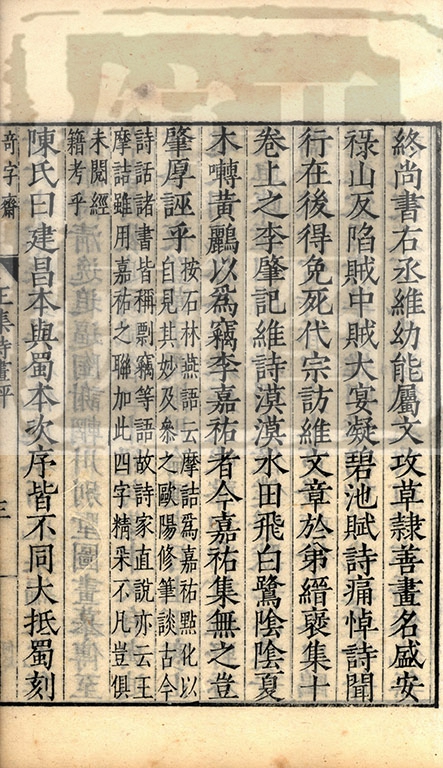 終尚書右丞維幼能屬文攻草隷善畫名盛安
祿山反陷賊中賊大宴凝碧池賦詩痛悼詩聞
行在後得免死代宗訪維文章於弟縉裒集十
卷上之李肇記維詩漠漠水田飛白鷺陰陰夏
木囀黃鸝以爲竊李嘉祐者今嘉祐集無之豈
肇厚誣乎
按石林燕語云摩詰爲嘉祐點化以
自見其妙及叅之歐陽修筆談古今
詩話諸書皆稱剽竊等語故詩家直說亦云王
摩詰雖用嘉祐之聯加此四字精采不凡豈俱
未閱經
籍考乎
陳氏曰建昌本與蜀本次序皆不同大抵蜀刻
奇字齋
王集詩畫評
三